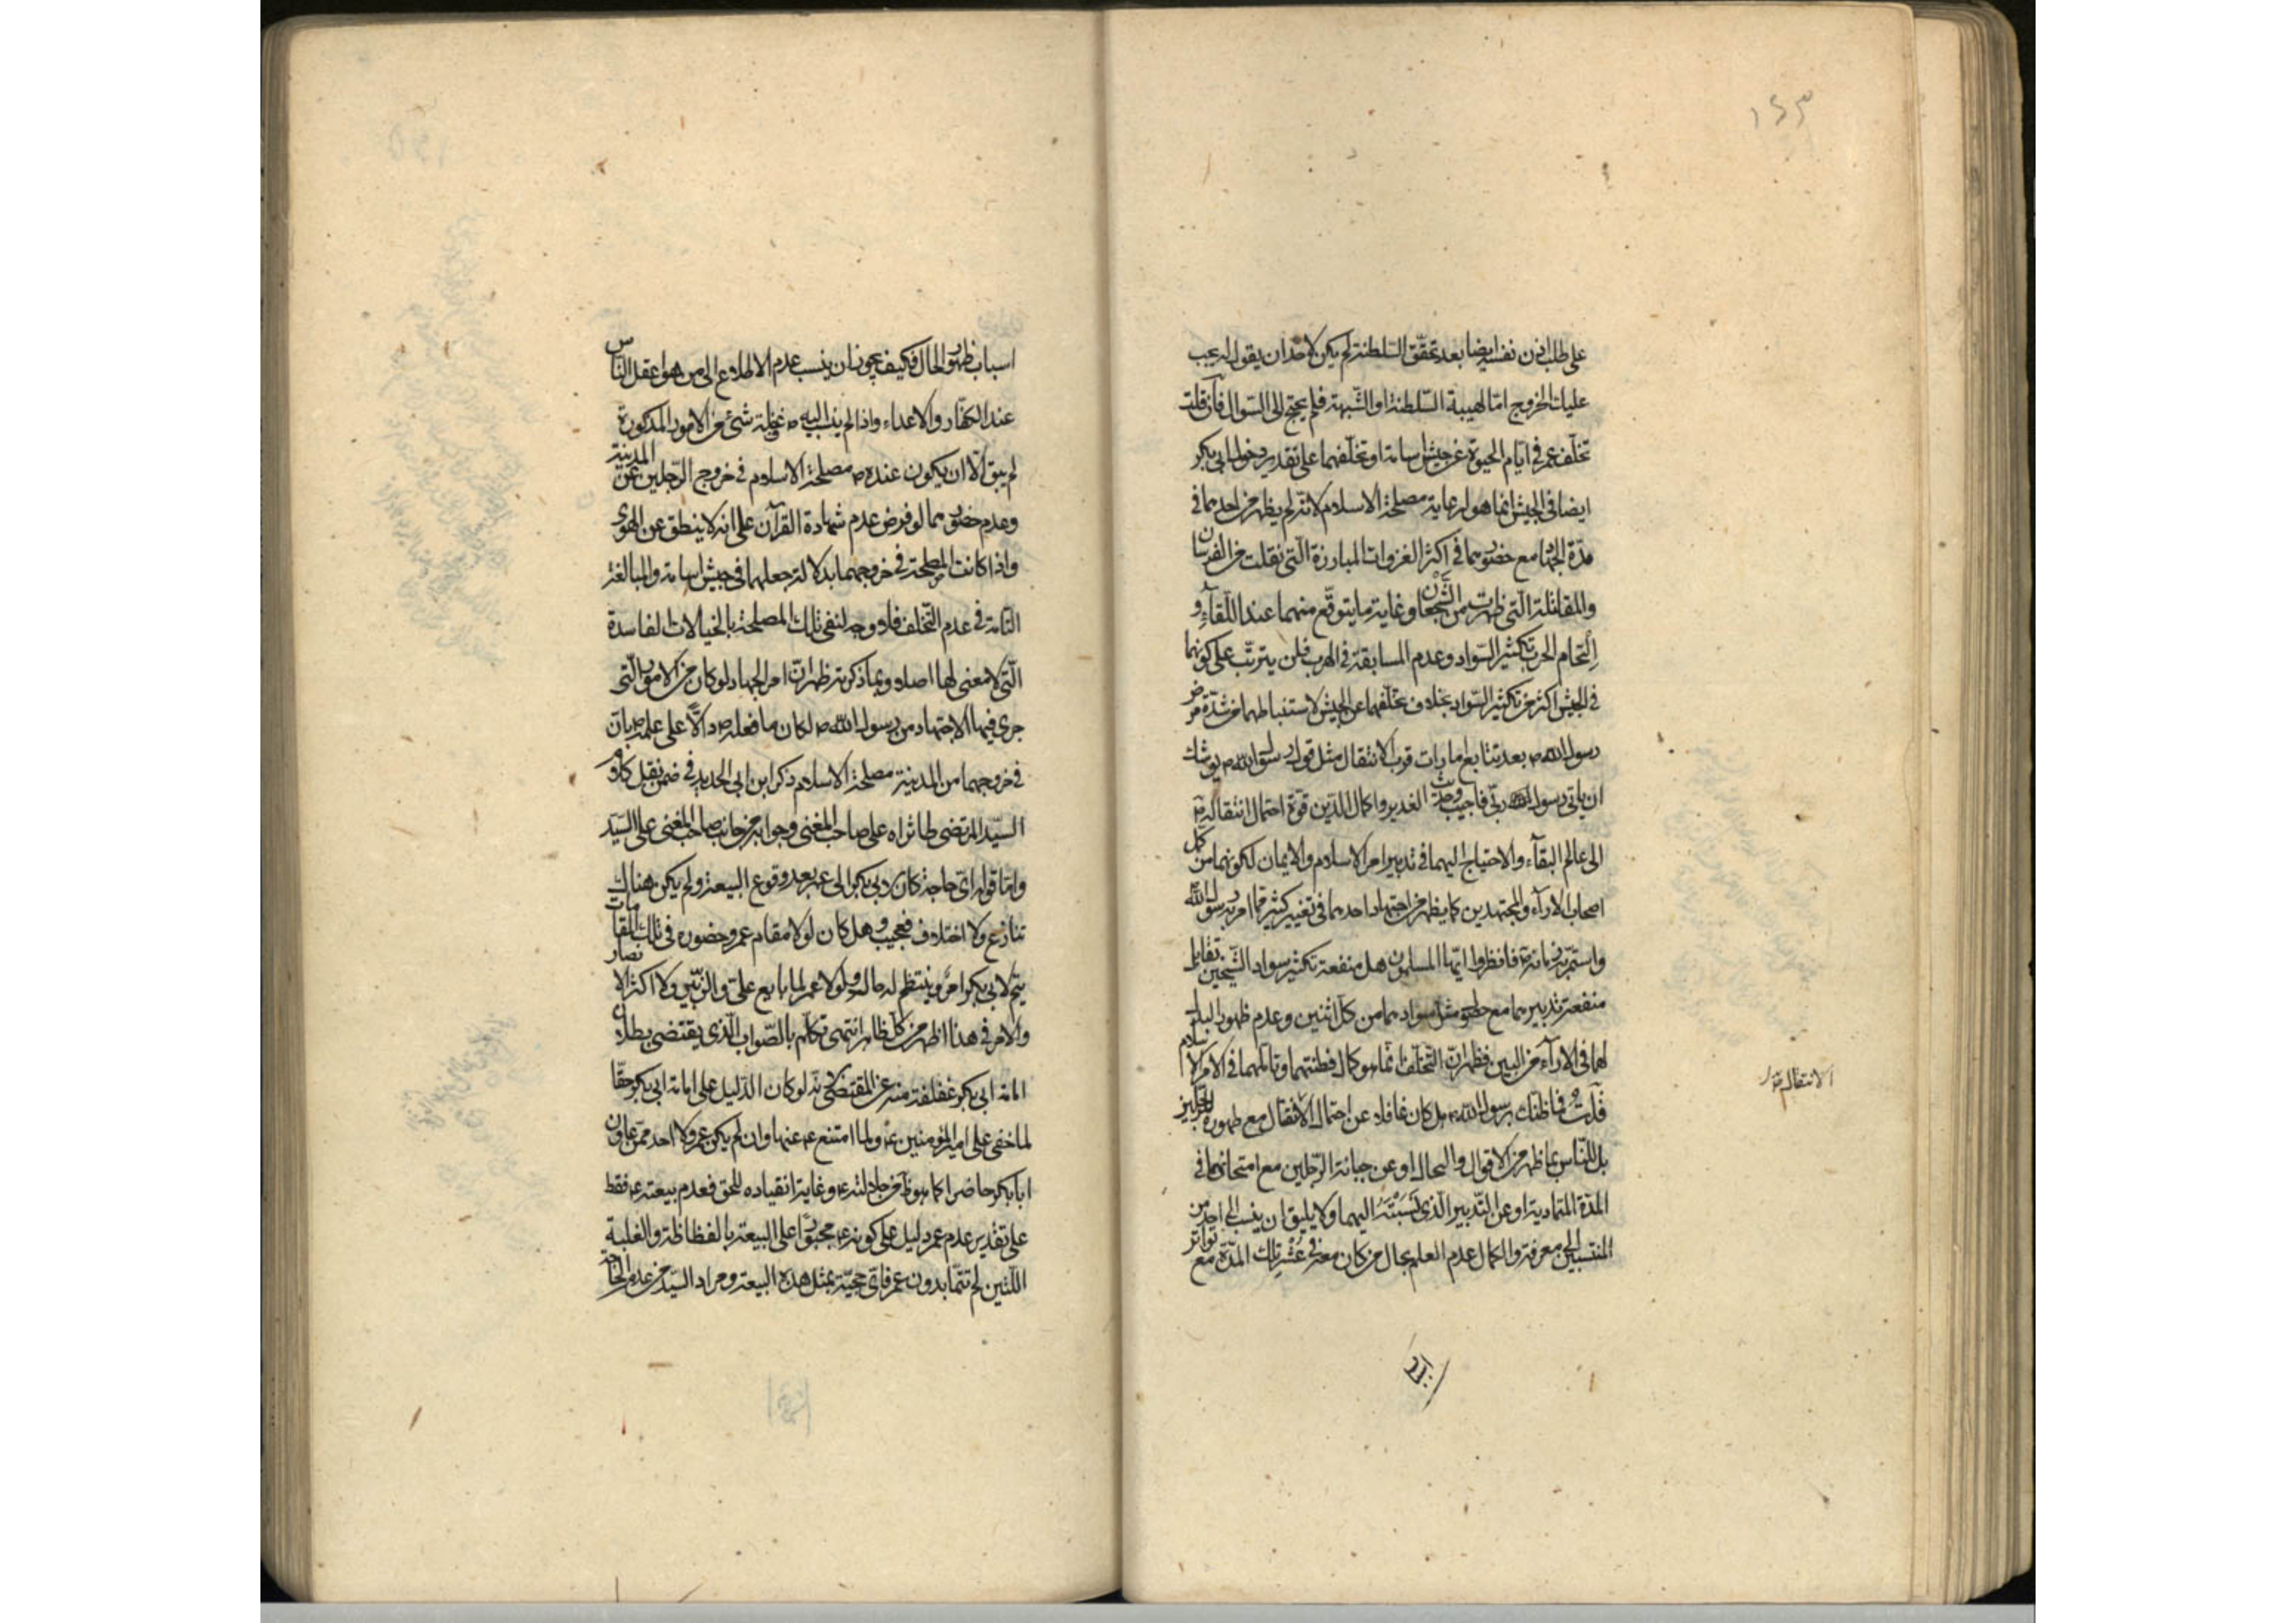 ١٤٣
على طلب اذن نفسه ايضا بعد تحقق السلطنة لم يكن لاحد ان يقول له يجب
عليك الخروج امّا لهيبة السّلطنة او الشّبهة فلم يحتج الى السّوال فان قلت
تخلّف عمر في ايّام الحيوة عن جيش اسامة او تخلّفهما على تقدير دخول ابي بكر
ايضا في الجيش انما هو لرعاية مصلحة الاسلام لانّه لم يظهر من احدهما في
مدّة الجهاد مع حضورهما في اكثر الغزوات المبارزة الّتي نقلت من الفرسان
والمقاتلة الّتي ظهرت من الشّجعان وغاية ما يتوقّع منهما عند اللّقاء و
التحام الحرب تكثير السّواد وعدم المسابقة في الهرب فلن يترتّب على كونهما
في الجيش اكثر من تكثير السّواد بخلاف تخلّفهما عن الجيش لاستنباطهما من شدّة مرض
رسول الله ص بعد تتابع امارات قرب الانتقال مثل قول رسول الله ص يوشك
ان ياتي رسول ربّي فاجيب وحديث الغدير واكمال الدّين قوّة احتمال انتقاله ص
الى عالم البقآء والاحتياج اليهما في تدبير امر الاسلام والايمان لكونهما من كمّل
اصحاب الارآء والمجتهدين كما يظهر من اجتهاد احدهما في تغيير كثير ممّا امر به رسول الله
واستمرّ زمانه ص فانظروا ايّها المسلمون هل منفعة تكثير سواد الشّيخين تقابل
منفعة تدبيرهما مع حصول مثل سوادهما من كلّ اثنين وعدم ظهور البدل
لهما في الارآء من البين فظهر انّ التّخلّف انّما هو كمال فطنتهما وتاملهما في الامر الاسلام
قلت فما ظنّك برسول الله ص هل كان غافلا عن احتمال الانتقال مع ظهوره للرجلين
بل للنّاس بما ظهر من الاقوال والحال او عن جبانة الرّجلين مع امتحانهما في
المدّة المتمادية او عن التّدبير الّذي نَسَبْتَهُ اليهما ولا يليق ان ينسب الى احد من
المنتسبين الى معرفة والكمال عدم العلم بحال من كان معه في عُشْر تلك المدّة مع تواتر
الانتقال
اسباب
اسباب ظهور الحال فكيف يجوز ان ينسب عدم الاطلاع الى من هو اعقل النّاس
عند الكفّار والاعداء واذا لم ينسب اليه ص غفلة شئ من الامور المذكورة
لم يبق الّا ان يكون عنده ص مصلحة الاسلام في خروج الرّجلين عن المدينة
وعدم حضورهما لو فرض عدم شهادة القرآن على انه لا ينطق عن الهوى
واذا كانت المصلحة في خروجهما بدلالة جعلهما في جيش اسامة والمبالغة
التّامة في عدم التّخلّف فلا وجه لنفي تلك المصلحة بالخيالات الفاسدة
الّتي لا معنى لها اصلا وبما ذكرته ظهر انّ امر الجهاد لو كان من الامور الّتي
جرى فيها الاجتهاد من رسول الله ص لكان ما فعله ص دالًّا على علمه ص بانّ
في خروجهما من المدينة مصلحة الاسلام ذكر ابن ابي الحديد في ضمن نقل كلام
السّيّد المرتضى طاب ثراه على صاحب المغني وجوابه من جانب صاحب المغني على السّيّد
وامّا قوله ايّ حاجة كان لابي بكر الى عمر بعد وقوع البيعة ولم يكن هناك
تنازع ولا اختلاف فعجيب وهل كان لولا مقام عمر وحضوره في تلك المقامات
يتمّ لابي بكر امر وينتظم له حال ولولا عمر لما بايع عليّ والزّبير ولا اكثر الانصار
والامر في هذا اظهر من كلّ ظاهر انتهى تكلّم بالصّواب الّذي يقتضي بطلان
امامة ابي بكر غفلة منه عن المقتضى لانّه لو كان الدّليل على امامة ابي بكر حقّا
لما خفى على امير المؤمنين ع ولما امتنع ع عنها وان لم يكن عمر ولا احد ممّن عاون
ابا بكر حاضرا كما هو ظاهر من جلالته ع وغاية انقياده للحق فعدم بيعته ع فقط
على تقدير عدم عمر دليل على كونه ع مجبورًا على البيعة بالفظاظة والغلبة
اللّتين لم تتمّا بدون عمر فايّ حجيّة بمثل هذه البيعة ومراد السّيّد من عدم الحاجة